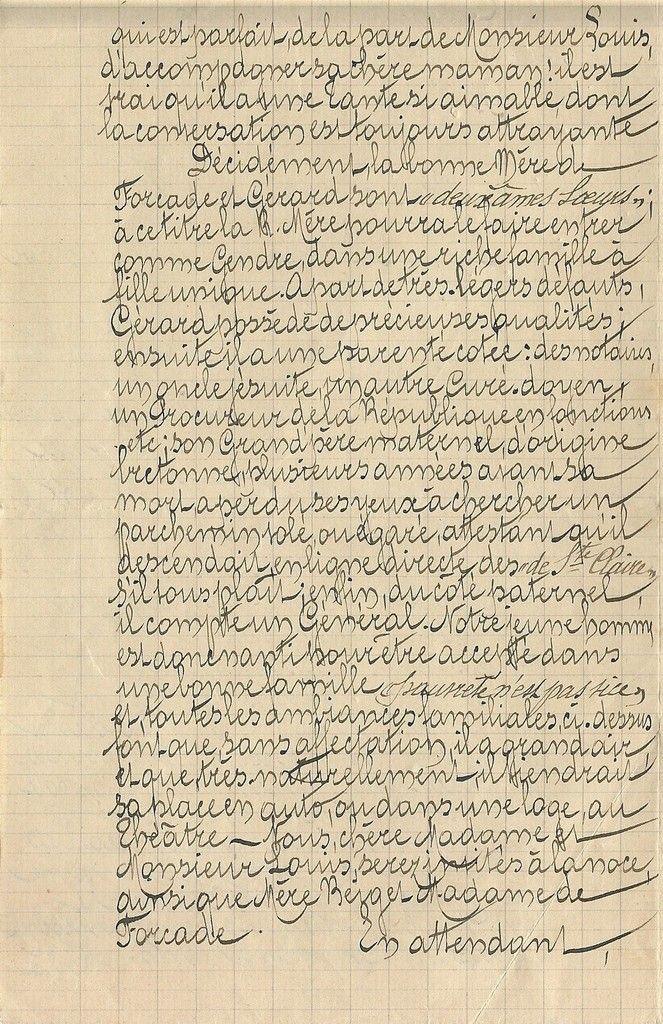 qui est parfait, de la part de Monsieur Louis,
d'accompagner sa chère maman! il est
vrai qu'il a une Tante si aimable dont
la conversation est toujours attrayante
Décidément, la bonne Mère de
Forcade et Gérard sont « deux âmes sœurs »;
à ce titre la B. Mère pourra le faire entrer
comme Gendre, dans une riche famille à
fille unique. A part de très légers défauts,
Gérard possède de précieuses qualités;
ensuite il a une parenté cotée: des notaires,
un oncle jésuite, un autre Curé-doyen,
un Procureur de la République en fonctions
etc; son Grand père maternel, d'origine
bretonne, plusieurs années avant sa
mort a perdu ses yeux à chercher un
parchemin volé, ou égaré, attestant qu'il
descendait, en ligne directe, des « de Ste Claire »
s'il vous plaît; enfin, du côté paternel,
il compte un Général. Notre jeune homme
est donc nanti pour être accepté dans
une bonne famille « pauvreté n'est pas vice »
et, toutes les ambiances familiales, ci-dessus
font que, sans affectation, il a grand air
et que, très naturellement, il tiendrait
sa place en auto, ou dans une loge, au
Théâtre — Vous, chère Madame et
Monsieur Louis, serez invités à la noce,
ainsi que Mère et Madame de
Forcade. En attendant,